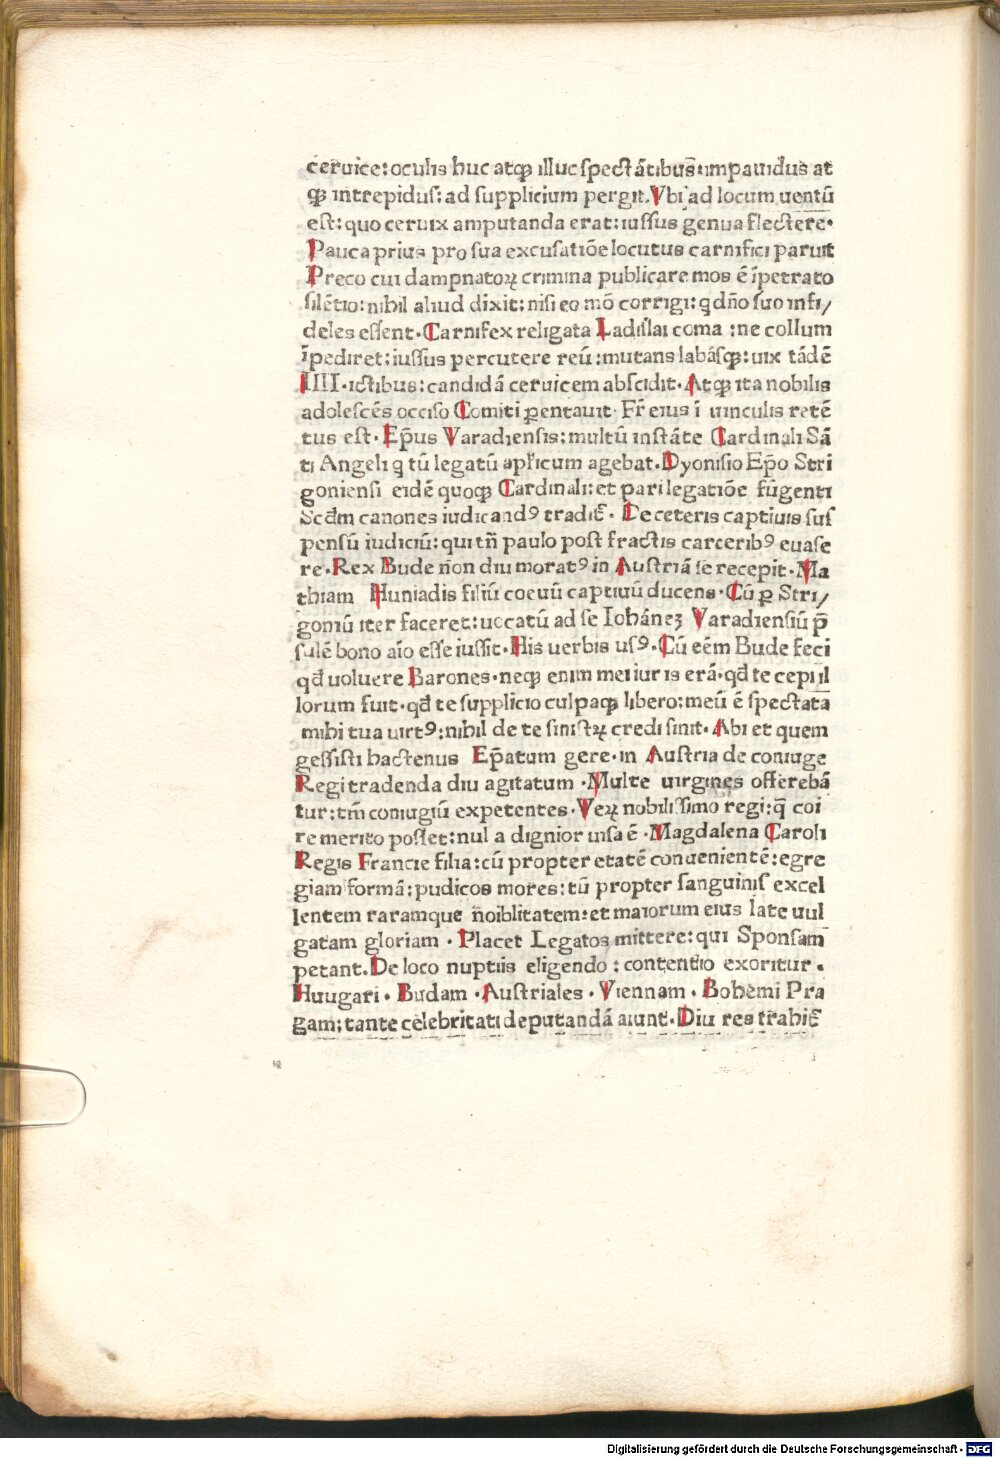 ceruice: oculis huc atqꝫ illuc spectātibus̄: impauidus at
qꝫ intrepidus: ad supplicium pergit. Vbi ad locum uentū
est: quo ceruix amputanda erat: iussus genua flectere.
Pauca prius pro sua excusatiōe locutus carnifici paruit
Preco cui dampnatoꝝ crimina publicare mos ē īpetrato
silētio: nihil aliud dixit: nisi eo mō corrigi: q dño suo infi/
deles essent. Carnifex religata Ladislai coma: ne collum
īpediret: iussus percutere reū: mutans labāsqꝫ: uix tādē
IIII. ictibus: candidā ceruicem abscidit. Atqꝫ ita nobilis
adolescēs occiso Comiti ꝑentauit Fr̄ eius ī uinculis retē
tus est. Ep̄us Varadiensis: multū instāte Cardinali Sā
ti Angeli q tū legatū apl̄icum agebat. Dyonisio Ep̄o Stri
goniensi eidē quoqꝫ Cardinali: et pari legatiōe fūgenti
Scd̄m canones iudicandꝰ tradit̄. De ceteris captiuis sus
pensū iudiciū: qui tn̄ paulo post fractis carceribꝰ euase
re. Rex Bude non diu moratꝰ in Austriā se recepit. Ma
thiam Huniadis filiū coeuū captiuū ducens. Cū ꝑ Stri/
goniū iter faceret: uocatū ad se Iohānez Varadiensiū p̄
sulē bono aīo esse iussit. His uerbis usꝰ. Cū eēm Bude feci
qd̄ uoluere Barones. neqꝫ enim mei iuris erā. qd̄ te cepi il
lorum fuit. qd̄ te supplicio culpaqꝫ libero: meū ē spectata
mihi tua uirtꝰ: nihil de te sinistꝝ credi sinit. Abi et quem
gessisti hactenus Ep̄atum gere. in Austria de coniuge
Regi tradenda diu agitatum. Multe uirgines offerebā
tur: tm̄ coniugiū expetentes. Veꝝ nobilissimo regi: q̄ coi
re merito posset: nul a dignior uisa ē. Magdalena Caroli
Regis Francie filia: cū propter etatē conuenientē: egre
giam formā: pudicos mores: tū propter sanguinis excel
lentem raramque n̄oiblitatem: et maiorum eius late uul
gatam gloriam. Placet Legatos mittere: qui Sponsam
petant. De loco nuptiis eligendo: contentio exoritur.
Huugari. Budam. Austriales. Viennam. Bohemi Pra
gam: tante celebritati deputandā aiunt. Diu res trahit̄
Digitalisierung gefördert durch die Deutsche Forschungsgemeinschaft - DFG